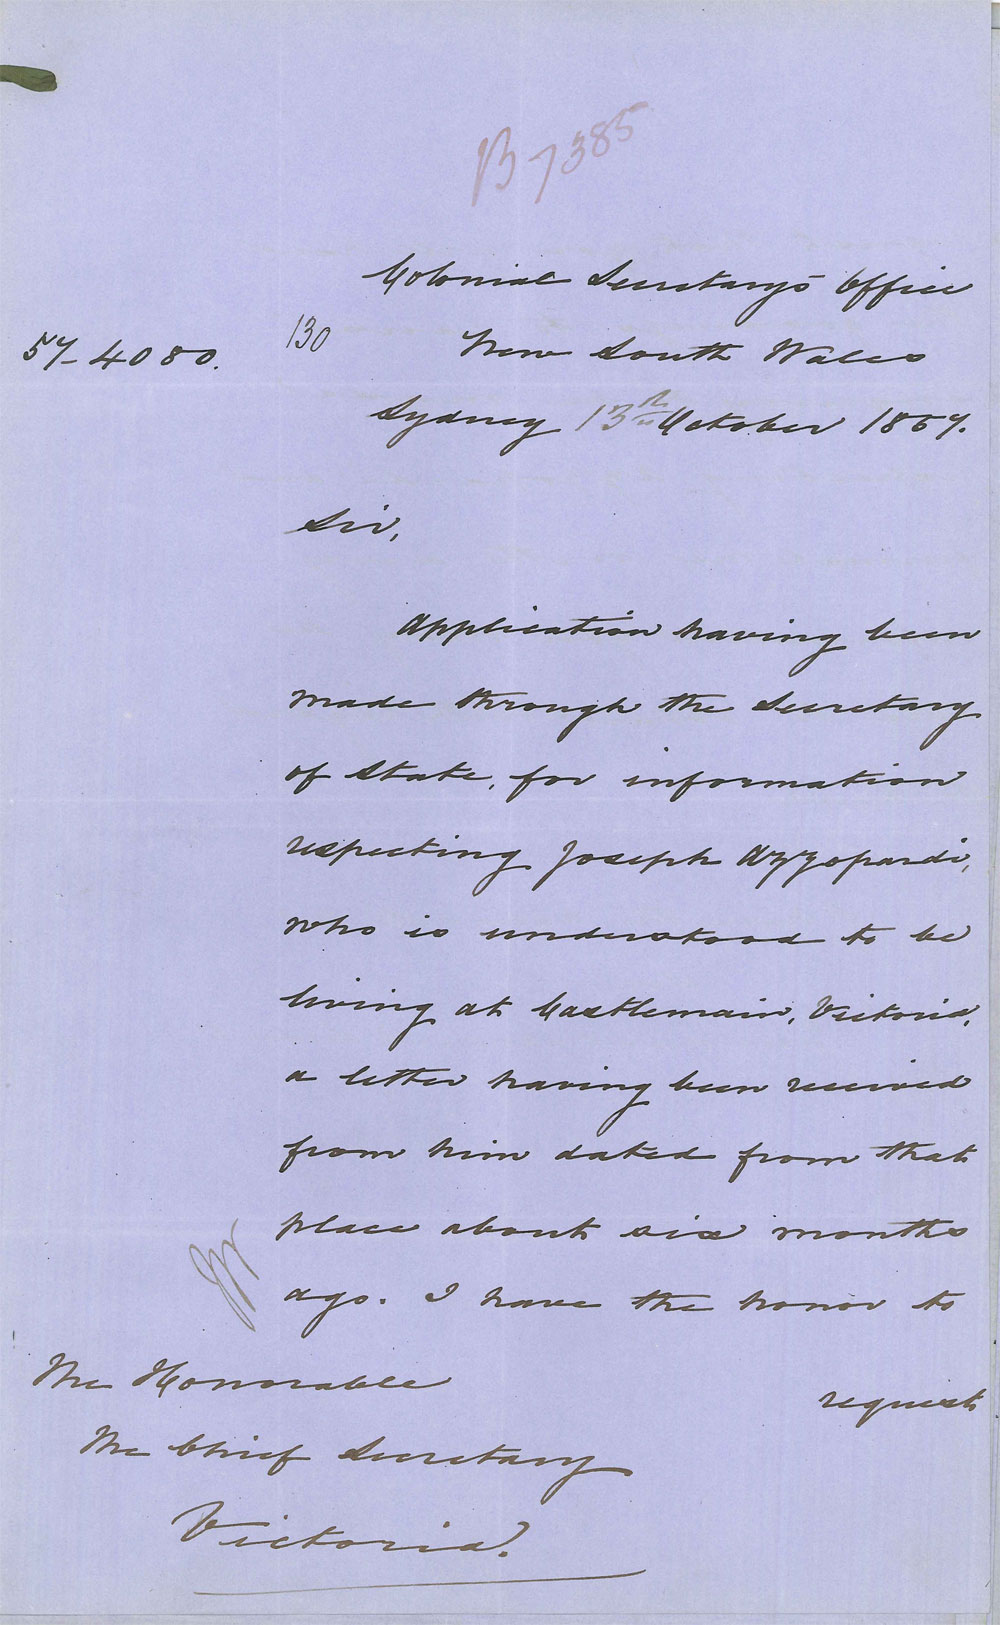 B 7385
Colonial Secretary's Office
57-4080. 130 New South Wales
Sydney 13th October 1857.
Sir,
Application having been
made through the Secretary
of State, for information
respecting Joseph Azzopardi,
who is understood to be
living at Castlemain, Victoria,
a letter having been received
from him dated from that
place about six months
ago. I have the honor to
request
The Honorable
The Chief Secretary
Victoria.